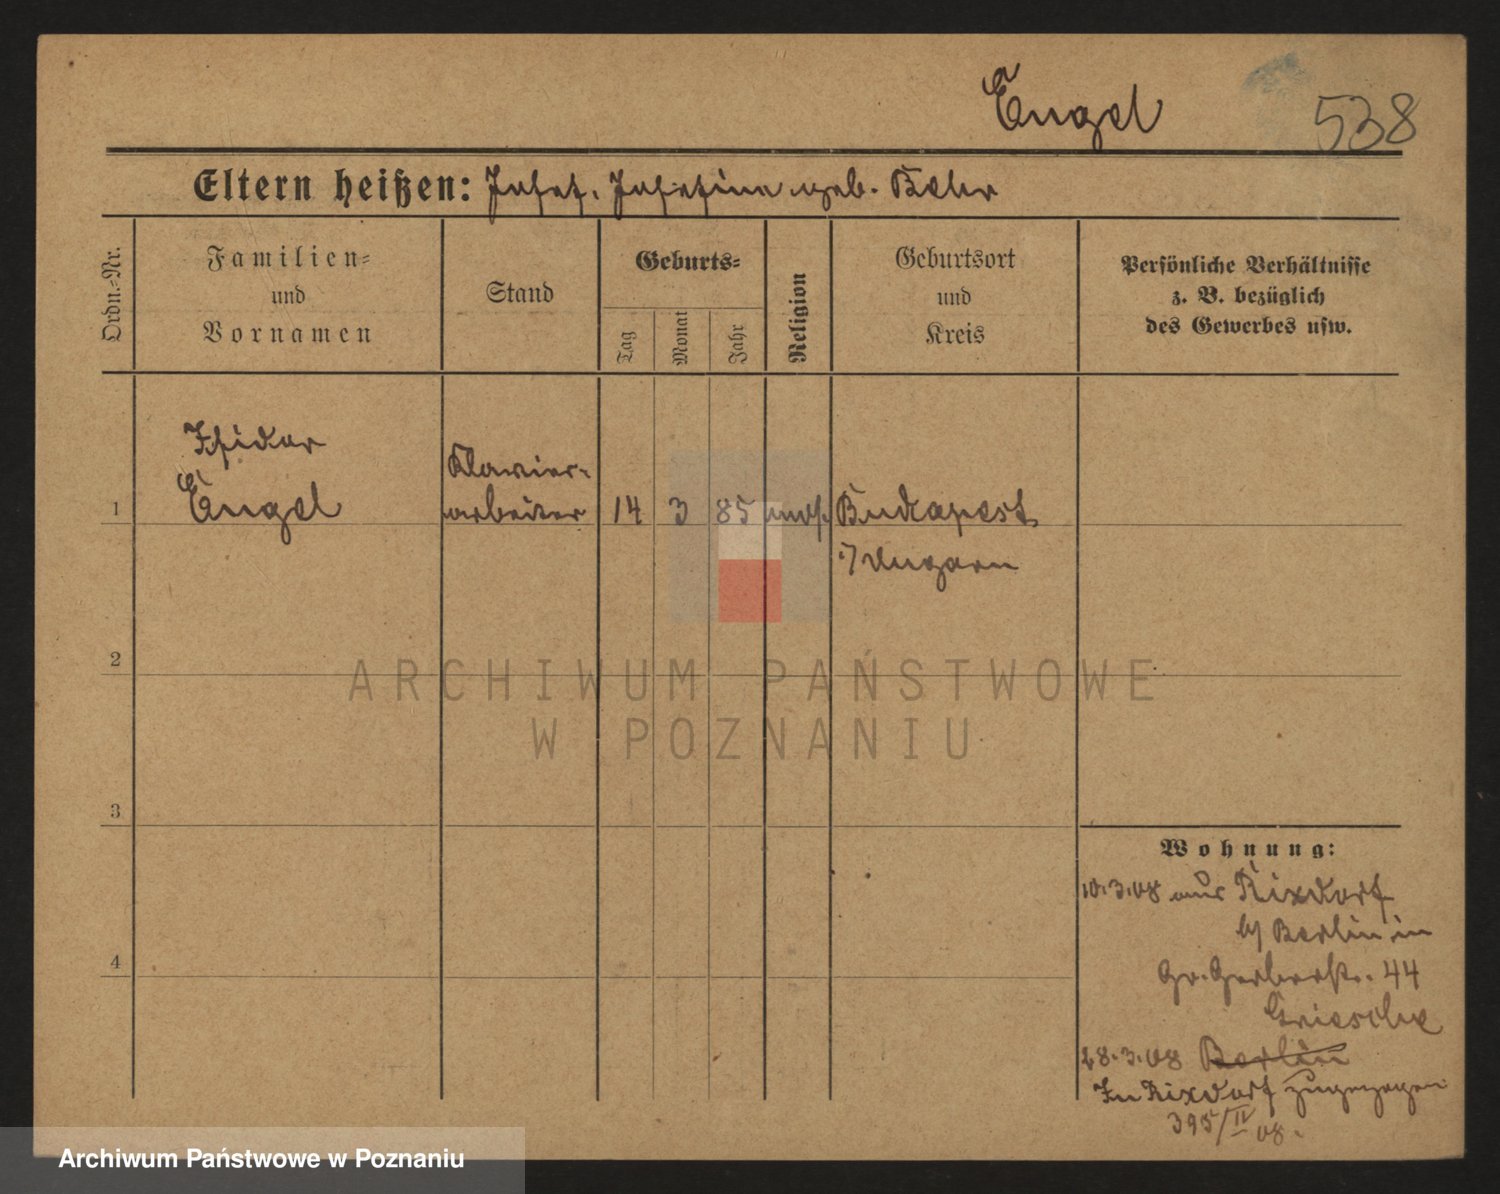 Engel 538
Eltern heißen: Josef, Josefine geb. Behr
Ordn.-Nr.
Familien-
und
Vornamen
Stand
Geburts-
Tag
Monat
Jahr
Religion
Geburtsort
und
Kreis
Persönliche Verhältnisse
z. B. bezüglich
des Gewerbes usw.
Isidor
Klavier-
1 Engel arbeiter 14 3 85 mos. Budapest
i/ Ungarn
2
ARCHIWUM PAŃSTWOWE
W POZNANIU
3
Wohnung:
10.3.08 aus Rixdorf
b/ Berlin in
4 Gr. Gerberstr. 44
Griesche
28.3.08 Berlin
In Rixdorf zugezogen
395/IV 08.
Archiwum Państwowe w Poznaniu